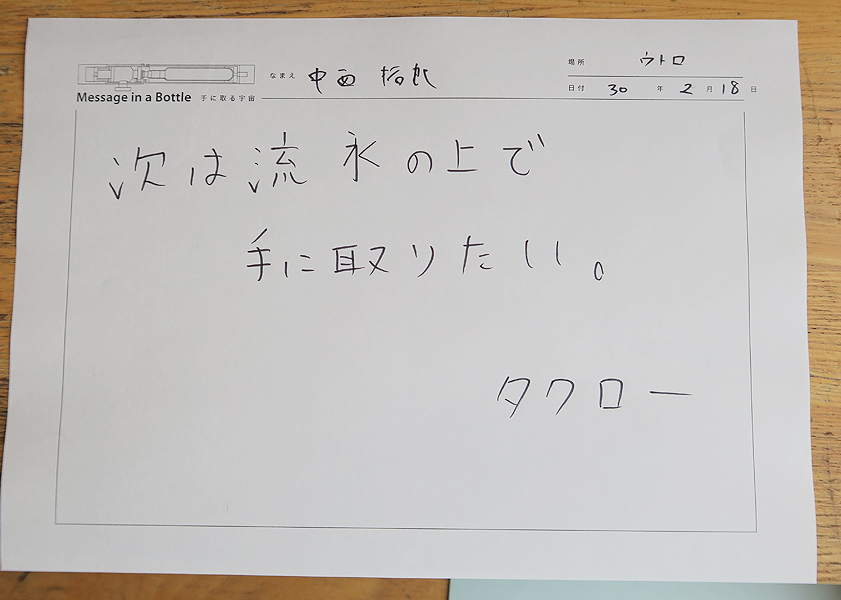 なまえ 中西 拓郎
場所 ウトロ
Message in a Bottle 手に取る宇宙
日付 30 年 2 月 18 日
次は流氷の上で
手に取りたい。
タクロー